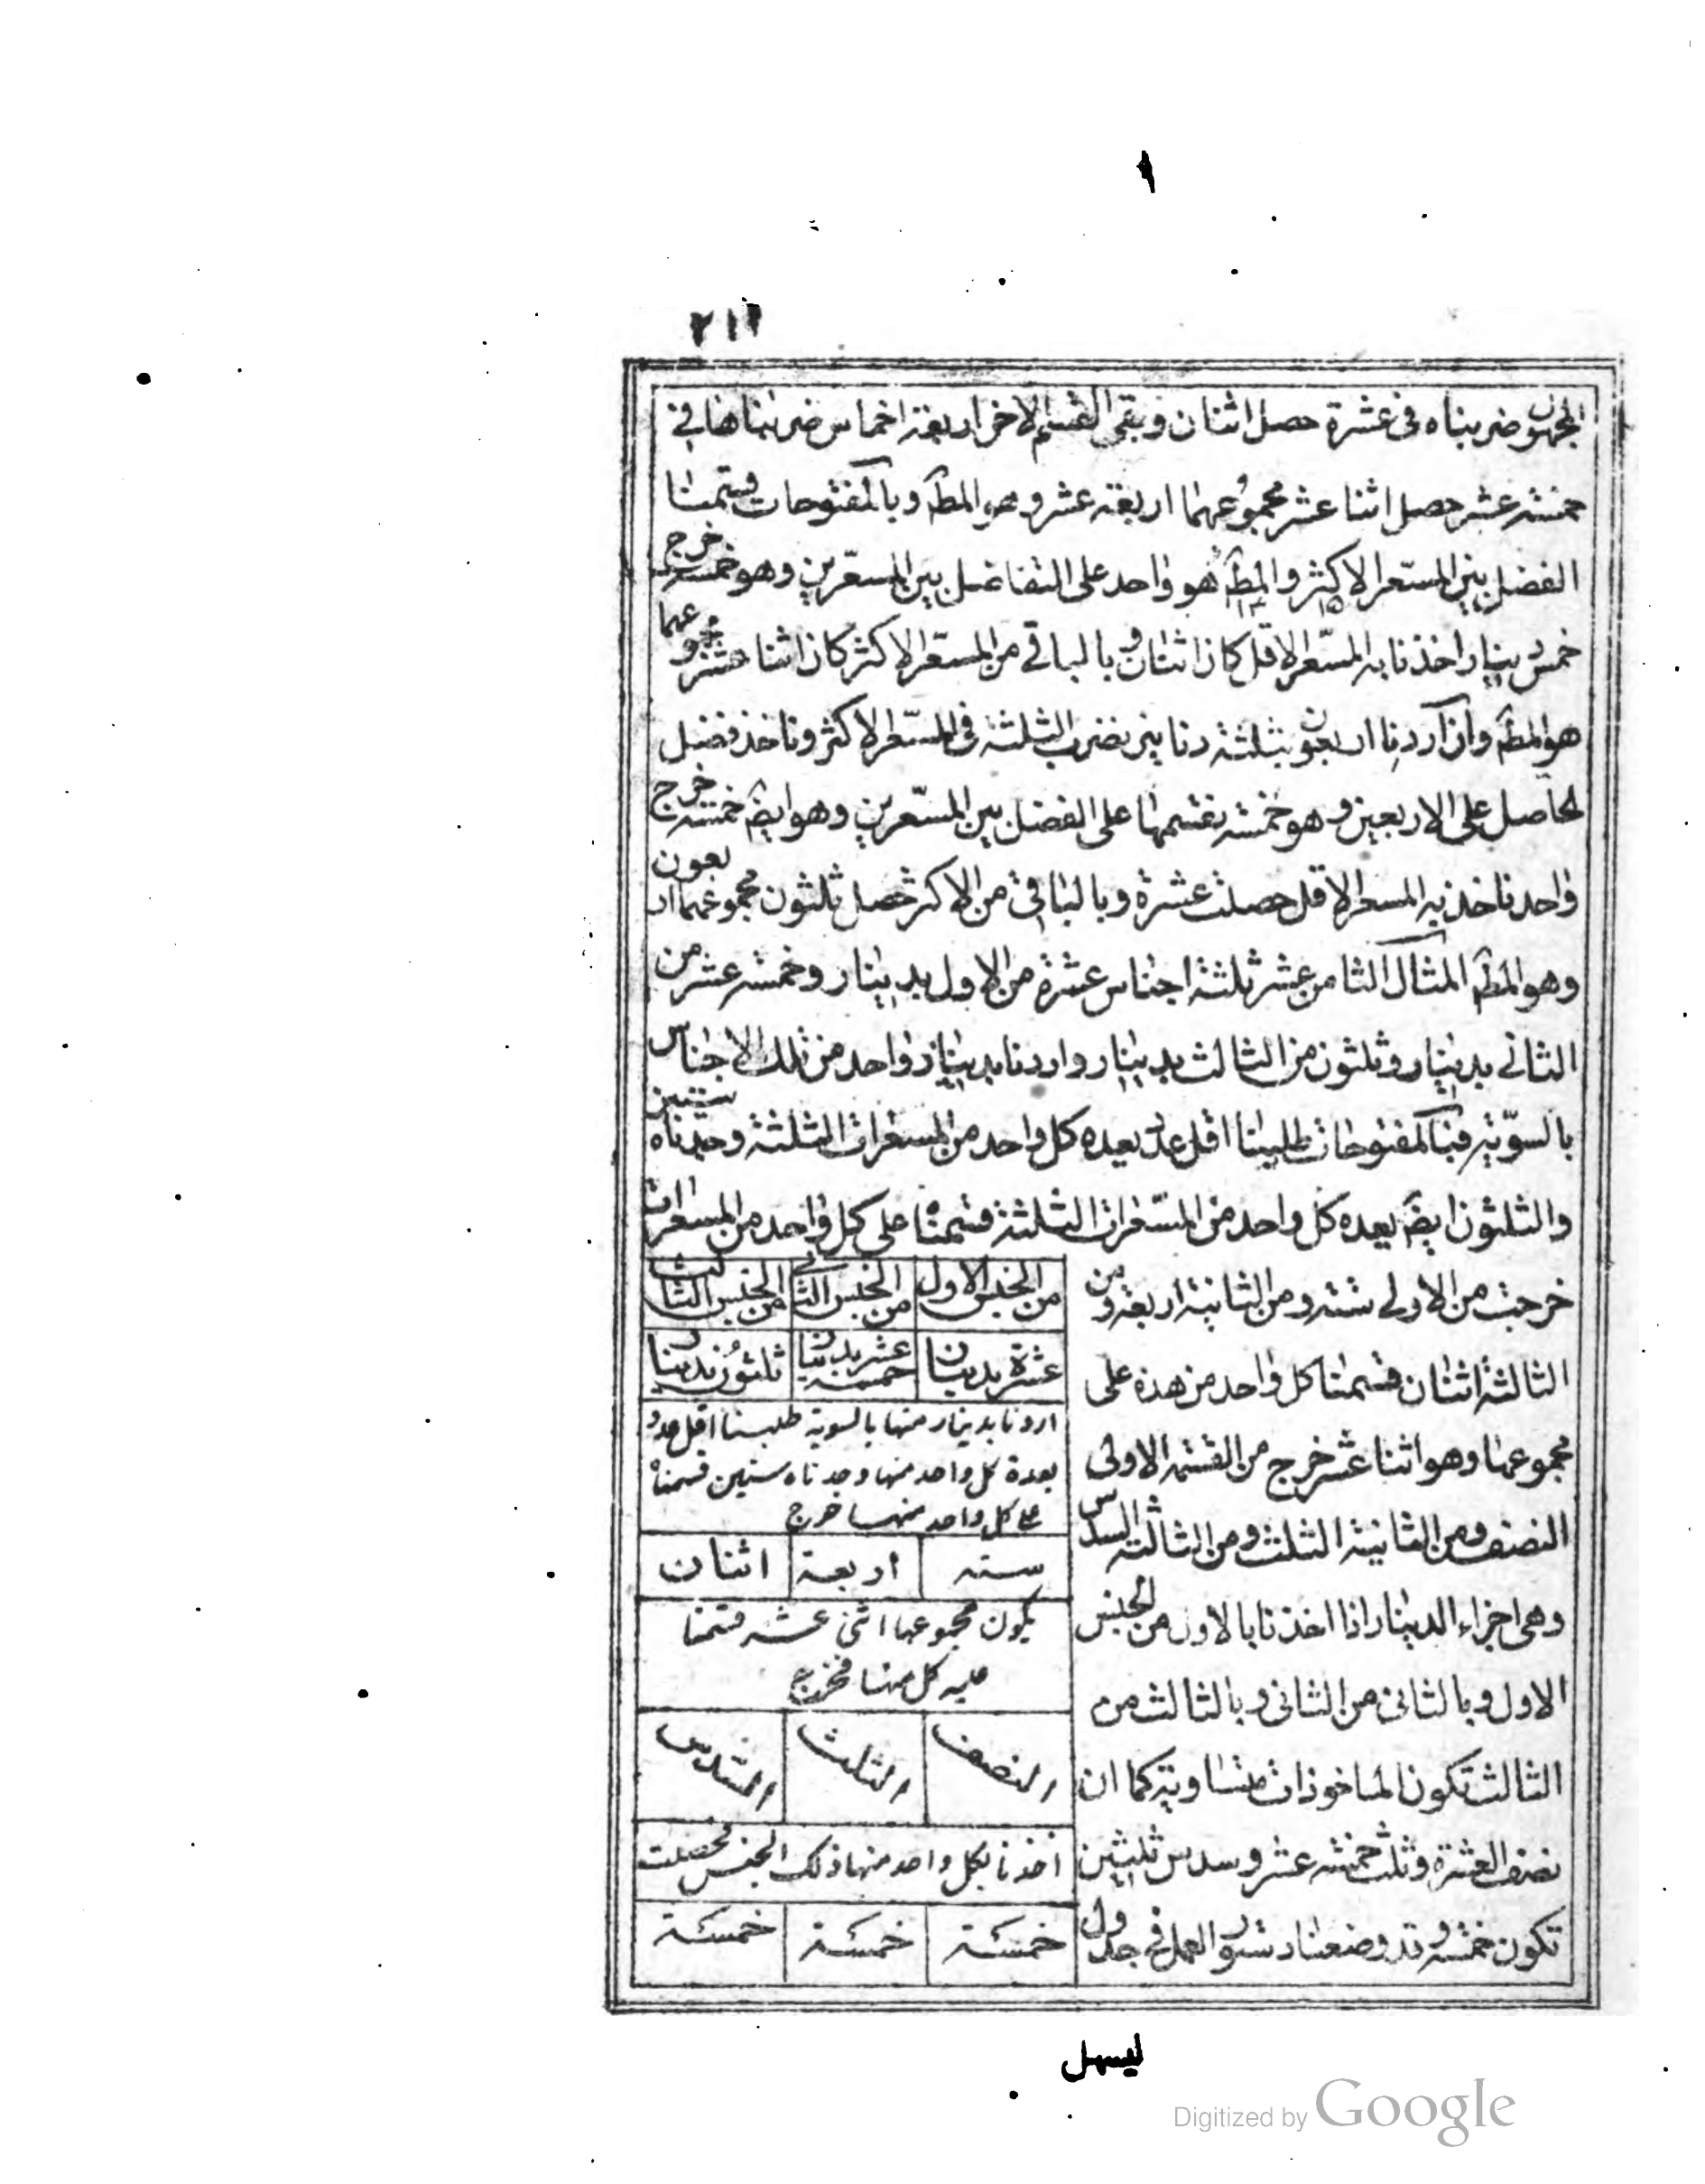 ٢١٢
المجهول ضربناه فى عشرة حصل اثنان وبقى القسم الاخر اربعة اخماس ضربناها فى
خمسة عشر حصل اثنا عشر مجموعهما اربعة عشر وهو المطـ وبالمفتوحات قسمنا
الفضل بين المسعر الاكثر والمطـ وهو واحد على التفاضل بين المسعّرين وهو خمسة خرج
١٥ ١٤
خمس دينار اخذنا به المسعّر الاقل كان اثنان وبالباقي من المسعّر الاكثر كان اثنا عشر مجموعهما
هو المطـ وان اردنا اربعون بثلثة دنانير نضرب الثلثة فى المسعّر الاكثر وناخذ فضل
الحاصل على الاربعين وهو خمسة نقسمها على الفضل بين المسعّرين وهو ايضـ خمسة خرج
واحد ناخذ به المسعر الاقل حصلت عشرة وبالباقى من الاكثر حصل ثلثون مجموعهما اربعون
وهو المطـ المثال الثامن عشر ثلثة اجناس عشرة من الاول بدينار وخمسة عشر من
الثانى بدينار وثلثون من الثالث بدينار واردنا بدينار واحد من تلك الاجناس
بالسوّية فبالمفتوحات طلبنا اقل عدد يعده كل واحد من المسعرات الثلثة وجدناه ستين
والثلثون ايضـ يعده كل واحد من المسّعرات الثلثة قسمناه على كل واحد من المسعرات
خرجت من الاولى ستة ومن الثانية اربعة ومن
الثالثة اثنان قسمنا كل واحد من هذه على
مجموعها وهو اثنا عشر خرج من القسمة الاولى
النصف ومن الثانية الثلث ومن الثالثة السدس
وهى اجزاء الدينار اذا اخذنا بالاول من الجنس
الاول وبالثانى من الثانى وبالثالث من
الثالث تكون الماخوذات متساوية كما ان
نصف العشرة وثلث خمسة عشر وسدس ثلثين
تكون خمسة وقد وضعنا دستور العمل فى جدول
من الجنس الاول من الجنس الثانى من الجنس الثالث
عشرة بدينار خمسة عشر بدينار ثلثون بدينار
اردنا بدينار منها بالسوية طلبنا اقل عدد
يعده كل واحد منها وجدناه ستين قسمناه
على كل واحد منها خرج
ستة اربعة اثنان
يكون مجموعها اثنى عشر قسمنا
عليه كل منها فخرج
النصف الثلث السّدس
اخذنا بكل واحد منها ذلك الجنس فحصلت
خمسة خمسة خمسة
ليسهل
Digitized by Google